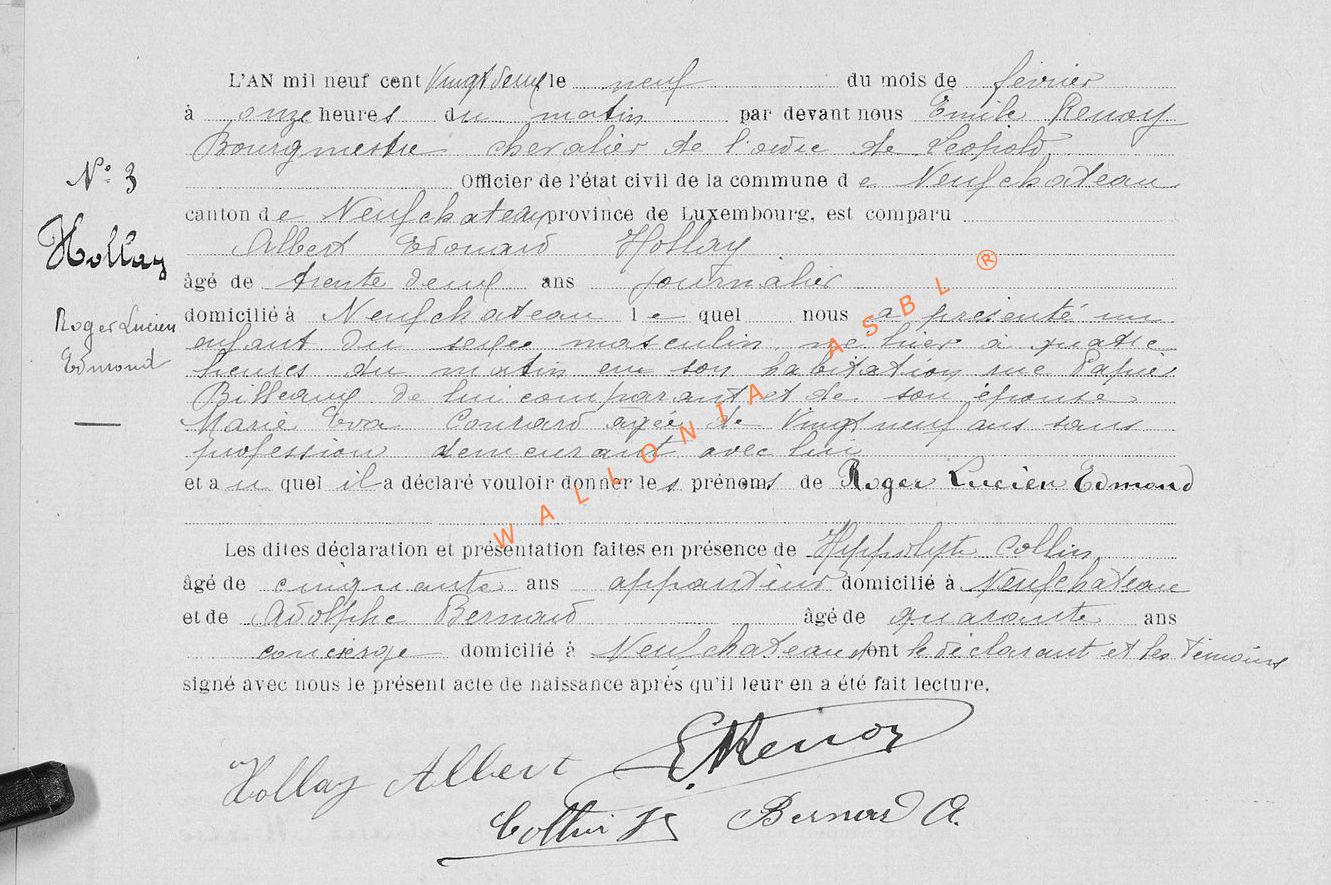 L'AN mil neuf cent Vingt deux le neuf du mois de février
à onze heures du matin par devant nous Emile Renoy
Bourgmestre chevalier de l'ordre de Léopold
N° 3
Officier de l'état civil de la commune de Neufchateau
canton de Neufchateau province de Luxembourg, est comparu
Hollay
Albert Edouard Hollay
âgé de trente deux ans journalier
Roger Lucien
Edmond
domicilié à Neufchateau le quel nous a présenté un
enfant du sexe masculin, né hier à quatre
heures du matin en son habitation rue
de lui comparant et de son épouse
Marie Eva Conrard agée de Vingt neuf ans sans
profession demeurant avec lui
et au quel il a déclaré vouloir donner les prénoms de Roger Lucien Edmond
WALLONIA ASBL ®
Les dites déclaration et présentation faites en présence de Hyppolyte Collin
âgé de cinquante ans appariteur domicilié à Neufchateau
et de Adolphe Bernard âgé de quarante ans
concierge domicilié à Neufchateau ont le déclarant et les témoins
signé avec nous le présent acte de naissance après qu'il leur en a été fait lecture.
Hollay Albert E Renoy
Collin Bernard A.